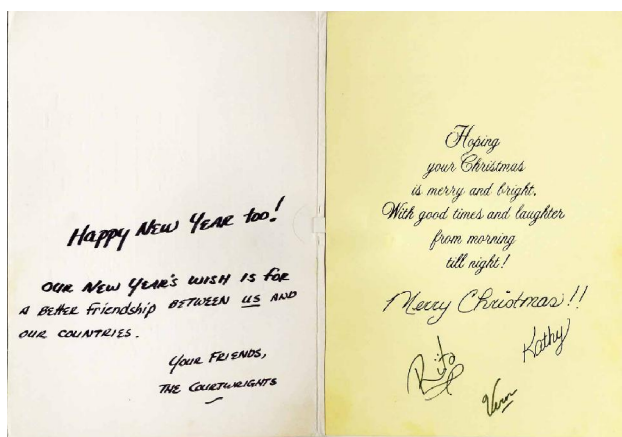 Happy New Year too!
Our New Year's wish is for
a better friendship between us and
our countries.
Your Friends,
The Courtwrights
Hoping
your Christmas
is merry and bright,
With good times and laughter
from morning
till night!
Merry Christmas!!
Rita
Kathy
Vern